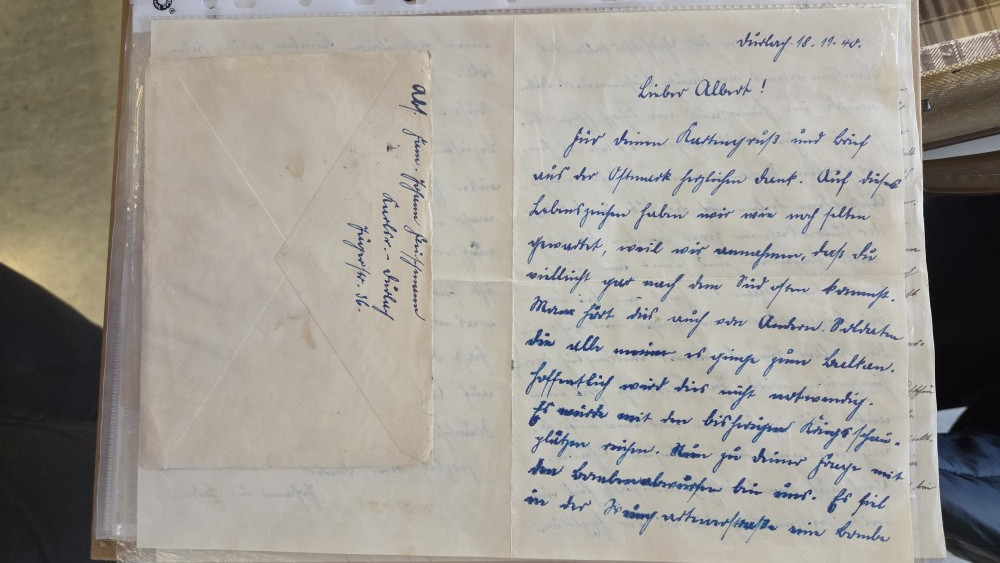 Durlach 18.11.40.
Lieber Albert!
Für deinen Kartengruß und Brief
aus der Ostmark herzlichen Dank. Auf dieses
Lebenszeichen haben wir wie noch selten
gewartet, weil wir annahmen, daß Du
vielleicht gar nach dem Süd osten kommst.
Man hört dies auch von Andern Soldaten
die alle meinen es ginge zum Balkan.
Hoffentlich wird dies nicht notwendig.
Es würde mit den bisherigen Kriegsschau-
plätzen reichen. Nun zu deiner Frage mit
den Bombenabwürfen bei uns. Es fiel
in der eine Bombe
Abs. Johann
Karlsr.-Durlach
str. 36.